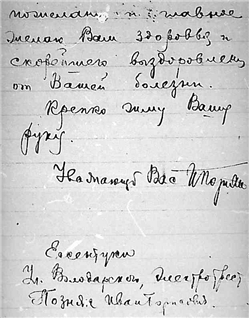 пожелани и главное
желаю Вам здоровья и
скорейшего выздоровлен
от Вашей болезни.
Крепко жму Вашу
руку.
Уважающий Вас
Ессентуки
Ул. Володарского, Электротрест
Позняк Иван